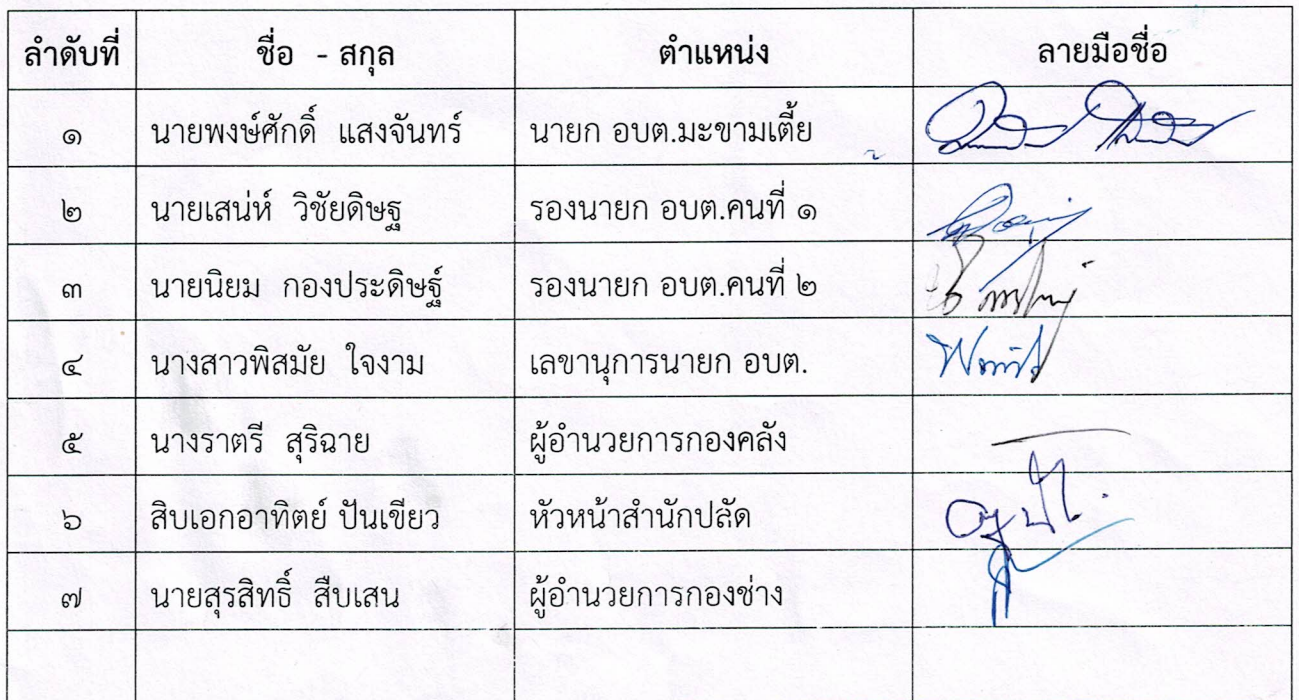 ลำดับที่ ชื่อ - สกุล ตำแหน่ง ลายมือชื่อ
๑ นายพงษ์ศักดิ์ แสงจันทร์ นายก อบต.มะขามเตี้ย
๒ นายเสน่ห์ วิชัยดิษฐ รองนายก อบต.คนที่ ๑
๓ นายนิยม กองประดิษฐ์ รองนายก อบต.คนที่ ๒
๔ นางสาวพิสมัย ใจงาม เลขานุการนายก อบต.
๕ นางราตรี สุริฉาย ผู้อำนวยการกองคลัง
๖ สิบเอกอาทิตย์ ปันเขียว หัวหน้าสำนักปลัด
๗ นายสุรสิทธิ์ สืบเสน ผู้อำนวยการกองช่าง